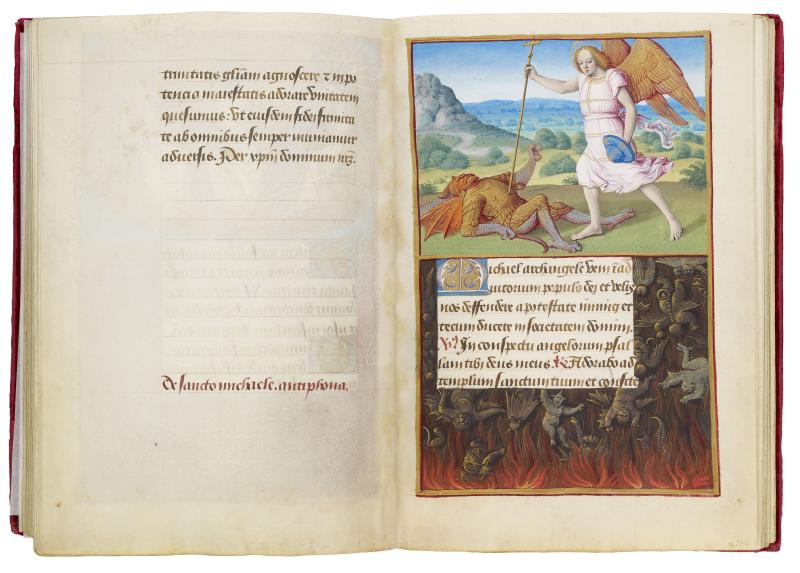 trinitatis gliam agnoscere ⁊ in po
tencia maiestatis adorare vnitatem
quesumus: vt eiusdem fidei firmita
te ab omnibus semper muniamur
aduersis. Per xpm dominum nr̄z.
De sancto michaele. antiphona.
Michael archangele veni ī ad
iutorium populo dei et velis
nos deffendere a potestate inimici et
tecum ducere in societatem domini.
V. In conspectu angelorum psal
lam tibi deus meus. R. Adorabo ad
templum sanctum tuum et confite